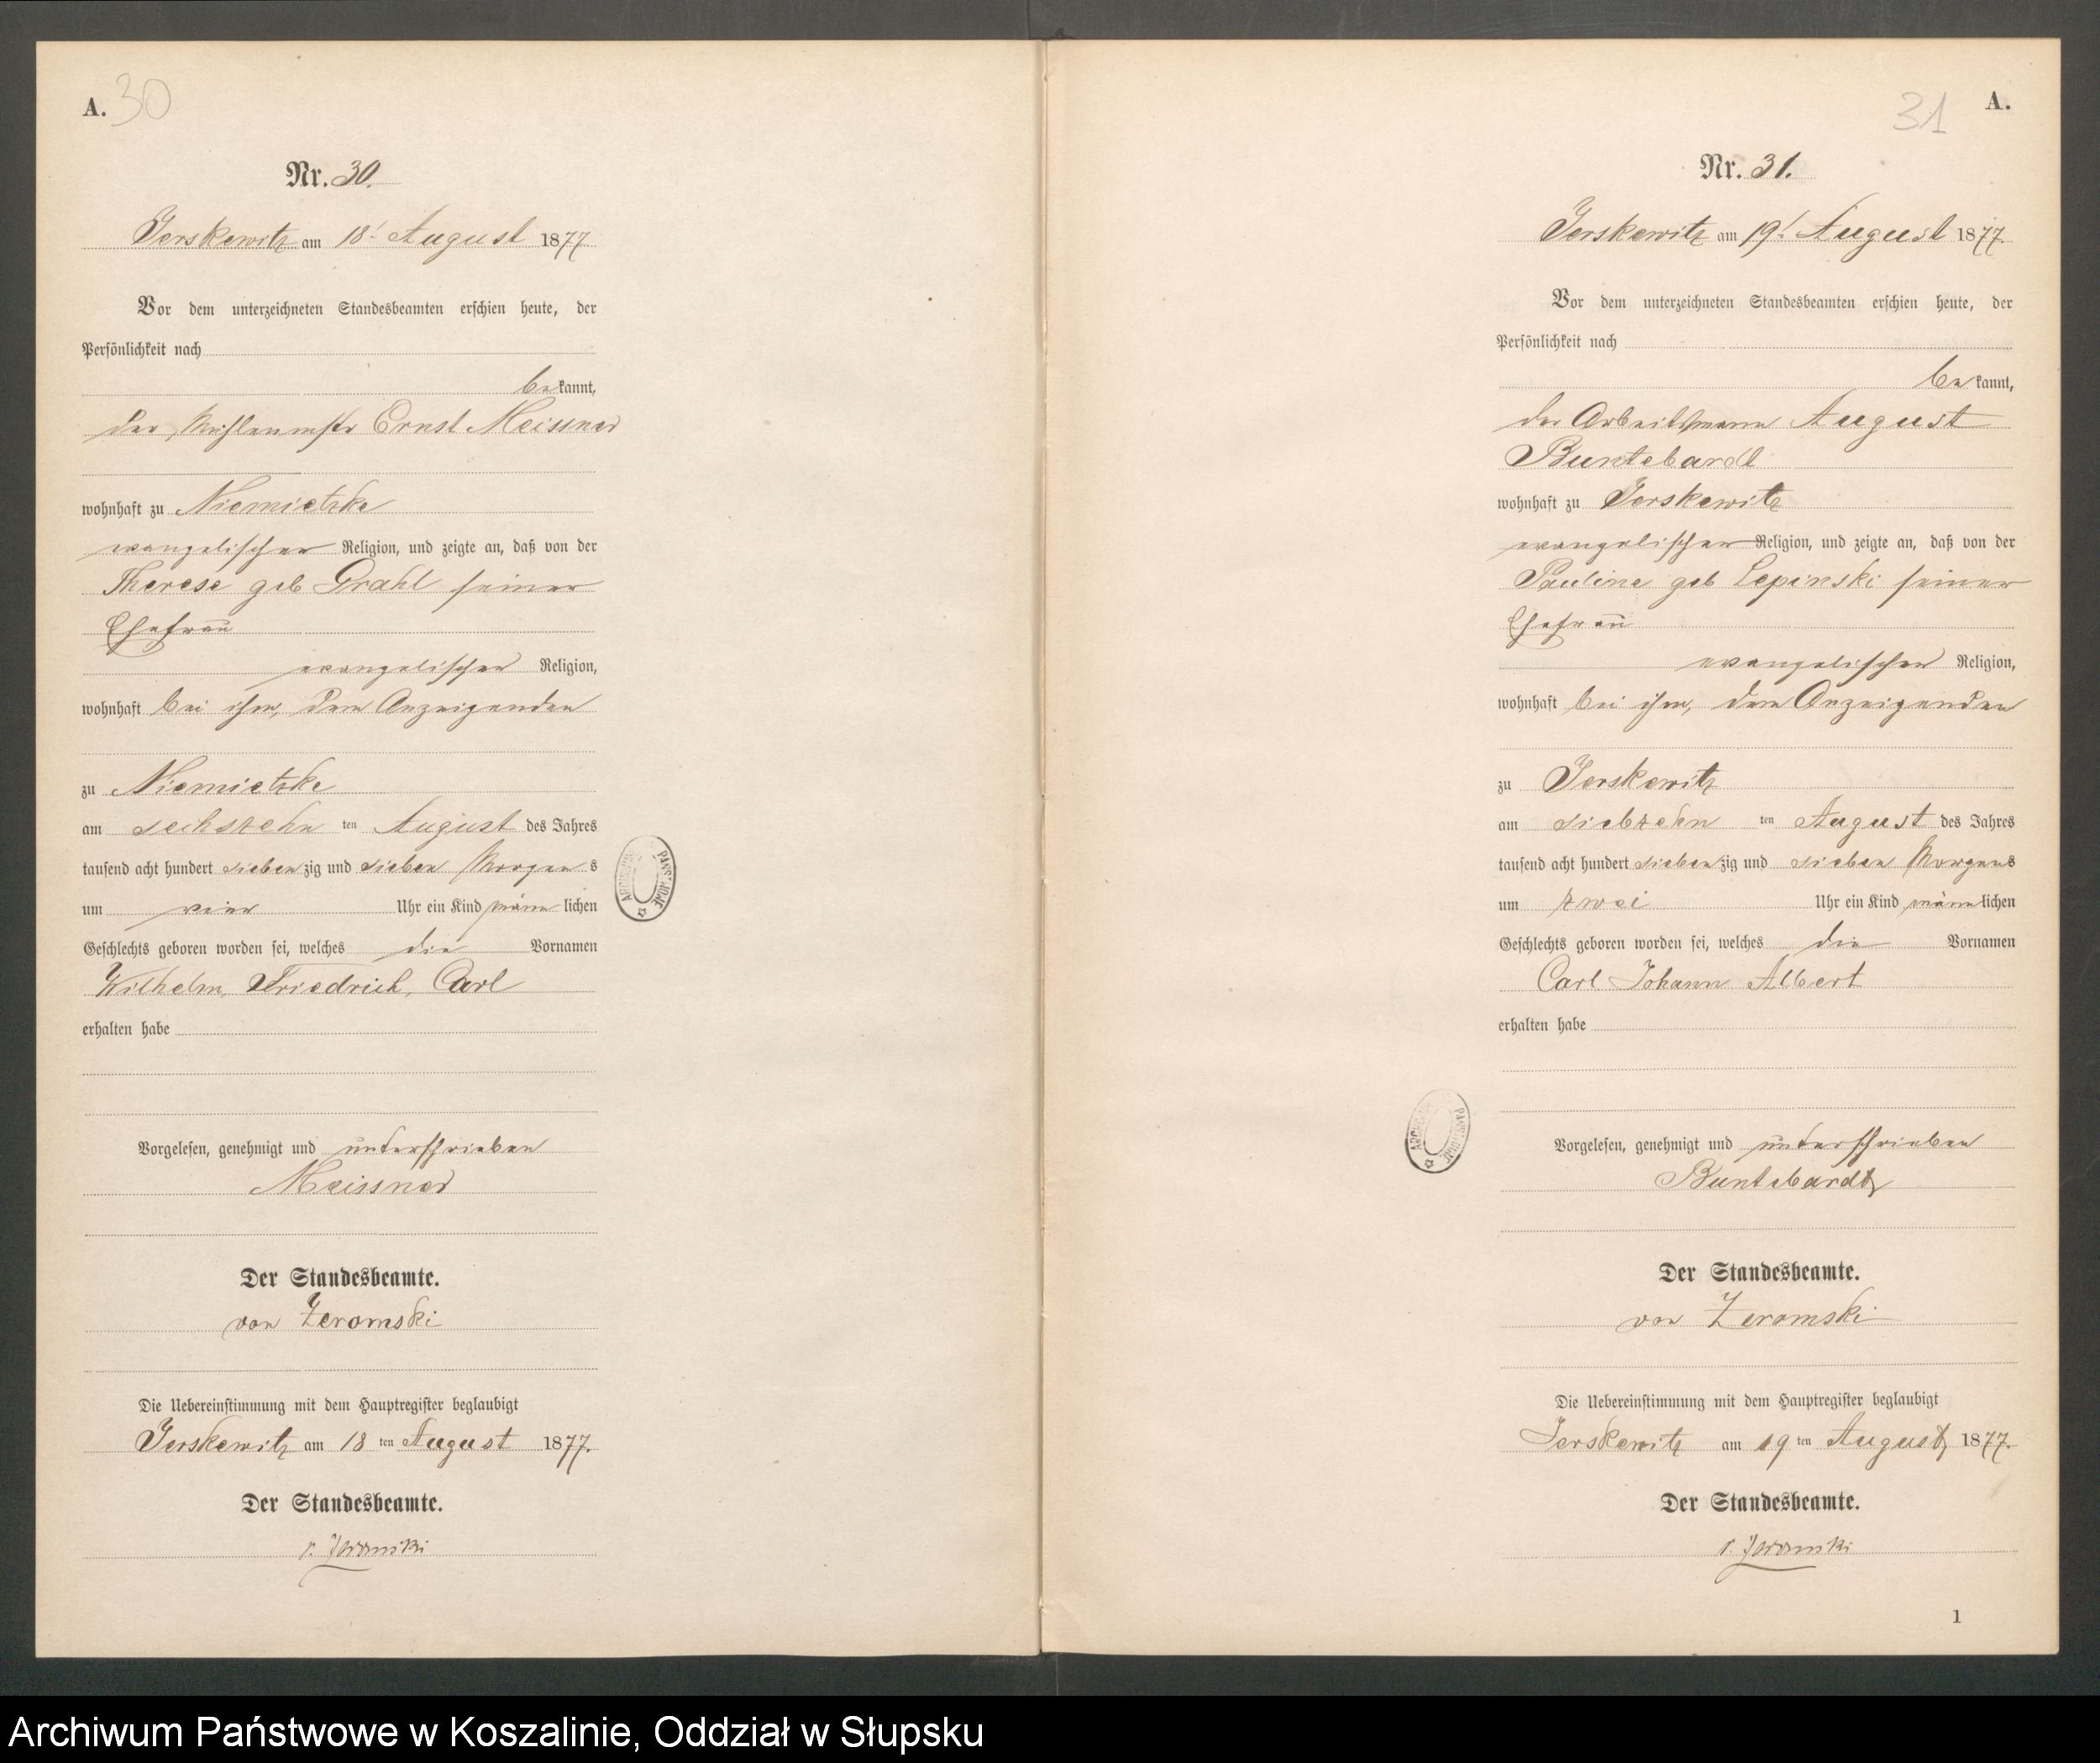 A. 30
Nr. 30.
Jerskewitz am 18t August 1877
Vor dem unterzeichneten Standesbeamten erschien heute, der
Persönlichkeit nach
be kannt,
der Mühlenmstr Ernst Meissner
wohnhaft zu Niemietzke
evangelischer Religion, und zeigte an, daß von der
Therese geb Grahl seiner
Ehefrau
evangelischer Religion,
wohnhaft bei ihm, dem Anzeigenden
zu Niemietzke
am sechszehn ten August des Jahres
tausend acht hundert sieben zig und sieben Morgen s
um vier Uhr ein Kind männ lichen
Geschlechts geboren worden sei, welches die Vornamen
Wilhelm, Friedrich, Carl
erhalten habe
Vorgelesen, genehmigt und unterschrieben
Meissner
Der Standesbeamte.
von Zeromski
Die Uebereinstimmung mit dem Hauptregister beglaubigt
Jerskewitz am 18 ten August 1877.
Der Standesbeamte.
v. Zeromski
31 A.
Nr. 31.
Jerskewitz am 19t August 1877.
Vor dem unterzeichneten Standesbeamten erschien heute, der
Persönlichkeit nach
be kannt,
der Arbeitsmann August
Buntebardt
wohnhaft zu Jerskewitz
evangelischer Religion, und zeigte an, daß von der
Pauline geb Lepinski seiner
Ehefrau
evangelischer Religion,
wohnhaft bei ihm, dem Anzeigenden
zu Jerskewitz
am siebzehn ten August des Jahres
tausend acht hundert sieben zig und sieben Morgens
um zwei Uhr ein Kind männ lichen
Geschlechts geboren worden sei, welches die Vornamen
Carl Johann Albert
erhalten habe
Vorgelesen, genehmigt und unterschrieben
Buntebardt
Der Standesbeamte.
von Zeromski
Die Uebereinstimmung mit dem Hauptregister beglaubigt
Jerskewitz am 19 ten August 1877.
Der Standesbeamte.
v. Zeromski
1
Archiwum Państwowe w Koszalinie, Oddział w Słupsku